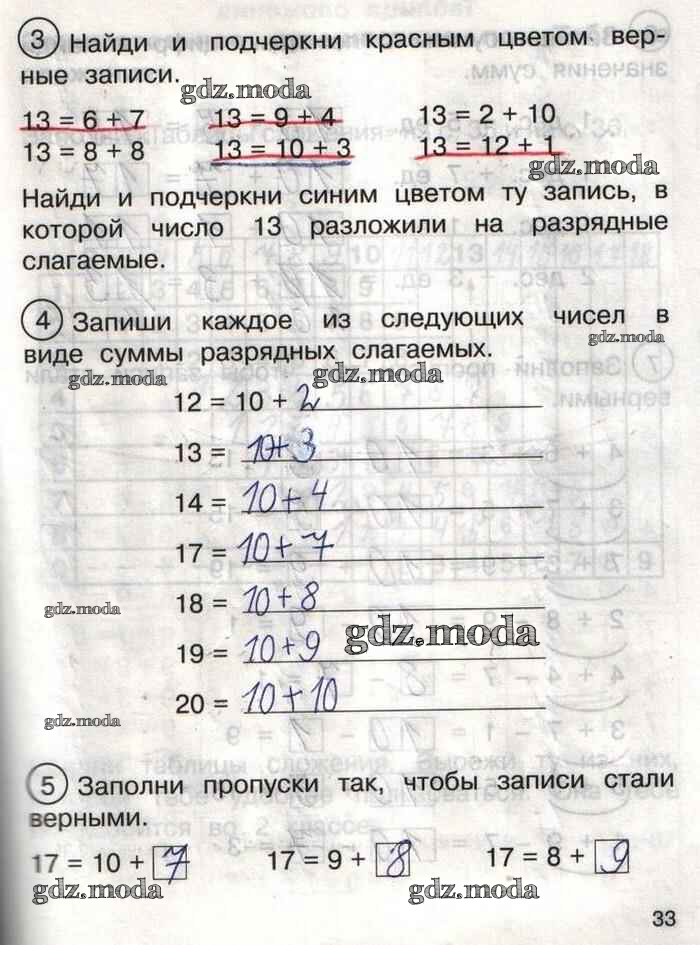 3 Найди и подчеркни красным цветом вер-
ные записи.
gdz.moda
13 = 6 + 7 13 = 9 + 4 13 = 2 + 10
13 = 8 + 8 13 = 10 + 3 13 = 12 + 1
gdz.moda
Найди и подчеркни синим цветом ту запись, в
которой число 13 разложили на разрядные
слагаемые.
4 Запиши каждое из следующих чисел в
gdz.moda
виде суммы разрядных слагаемых.
gdz.moda gdz.moda
12 = 10 + 2
13 = 10+3
14 = 10+4
17 = 10+7
18 = 10+8
gdz.moda
gdz.moda
19 = 10+9
20 = 10+10
gdz.moda
5 Заполни пропуски так, чтобы записи стали
верными.
17 = 10 + 7 17 = 9 + 8 17 = 8 + 9
gdz.moda gdz.moda gdz.moda
33